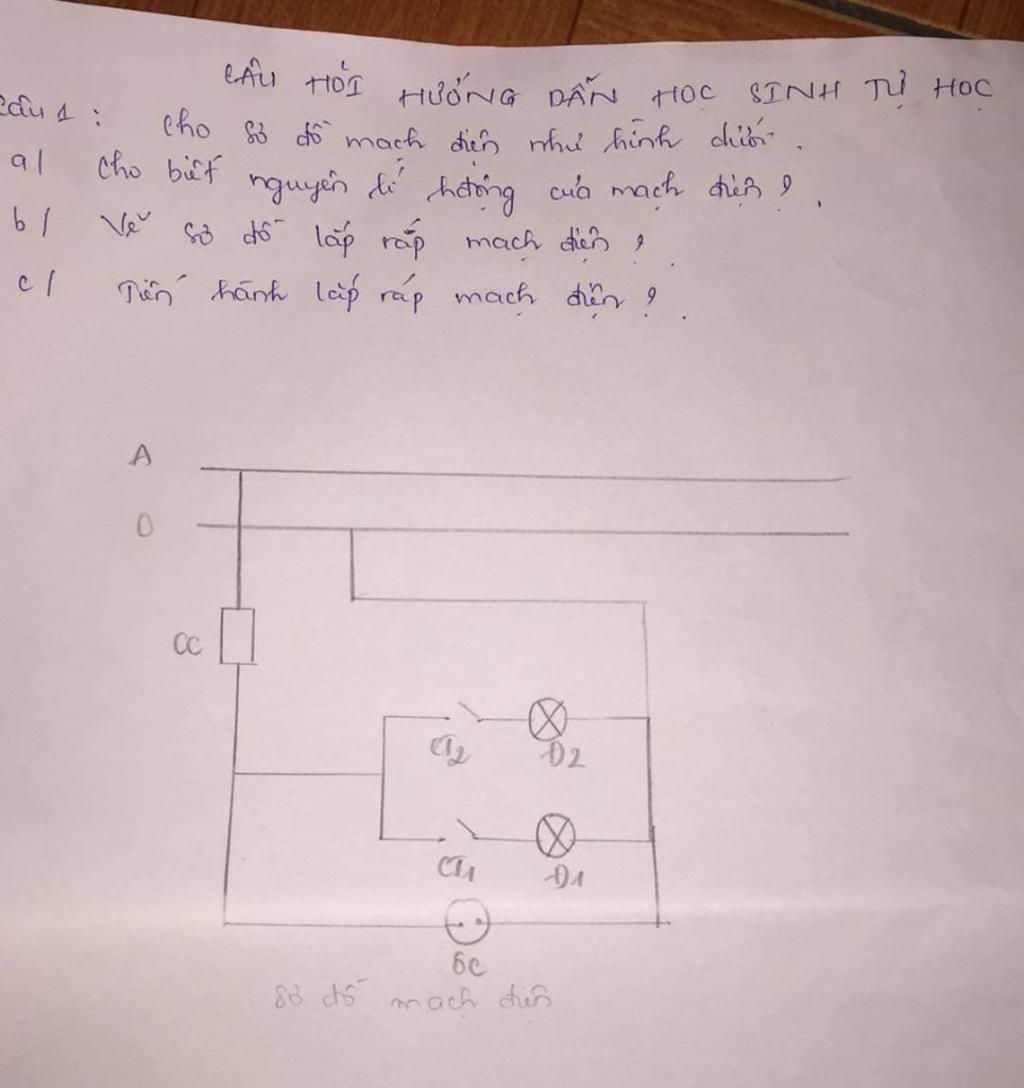 CÂU HỎI HƯỚNG DẪN HỌC SINH TỰ HỌC
Câu 1 : Cho sơ đồ mạch điện như hình dưới.
a/ Cho biết nguyên lí hđộng của mạch điện ?
b/ Vẽ sơ đồ lắp ráp mạch điện ?
c/ Tiến hành lắp ráp mạch điện ?
A
O
CC
CT2 Đ2
CT1 Đ1
ổC
Sơ đồ mạch điện